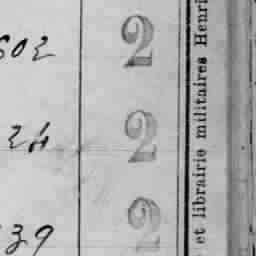 602 2
24 2
39 2
et librairie militaires Henri